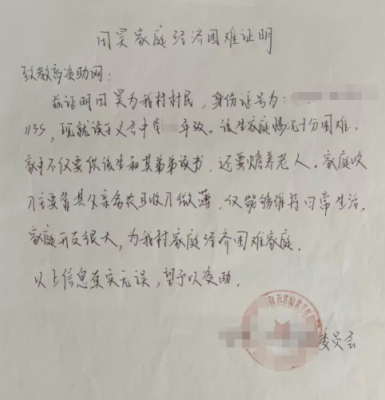 田昊家庭经济困难证明
致教育资助网:
兹证明田昊为我村村民,身份证号为:
1135,现就读于义合中学 年级。该生家庭情况十分困难,
家中不仅要供该生和其弟弟读书,还要赡养老人。家庭收
入主要靠其父亲务农且收入微薄,仅能够维持日常生活,
家庭开支很大,为我村家庭经济困难家庭。
以上信息真实无误,望予以资助。
委员会